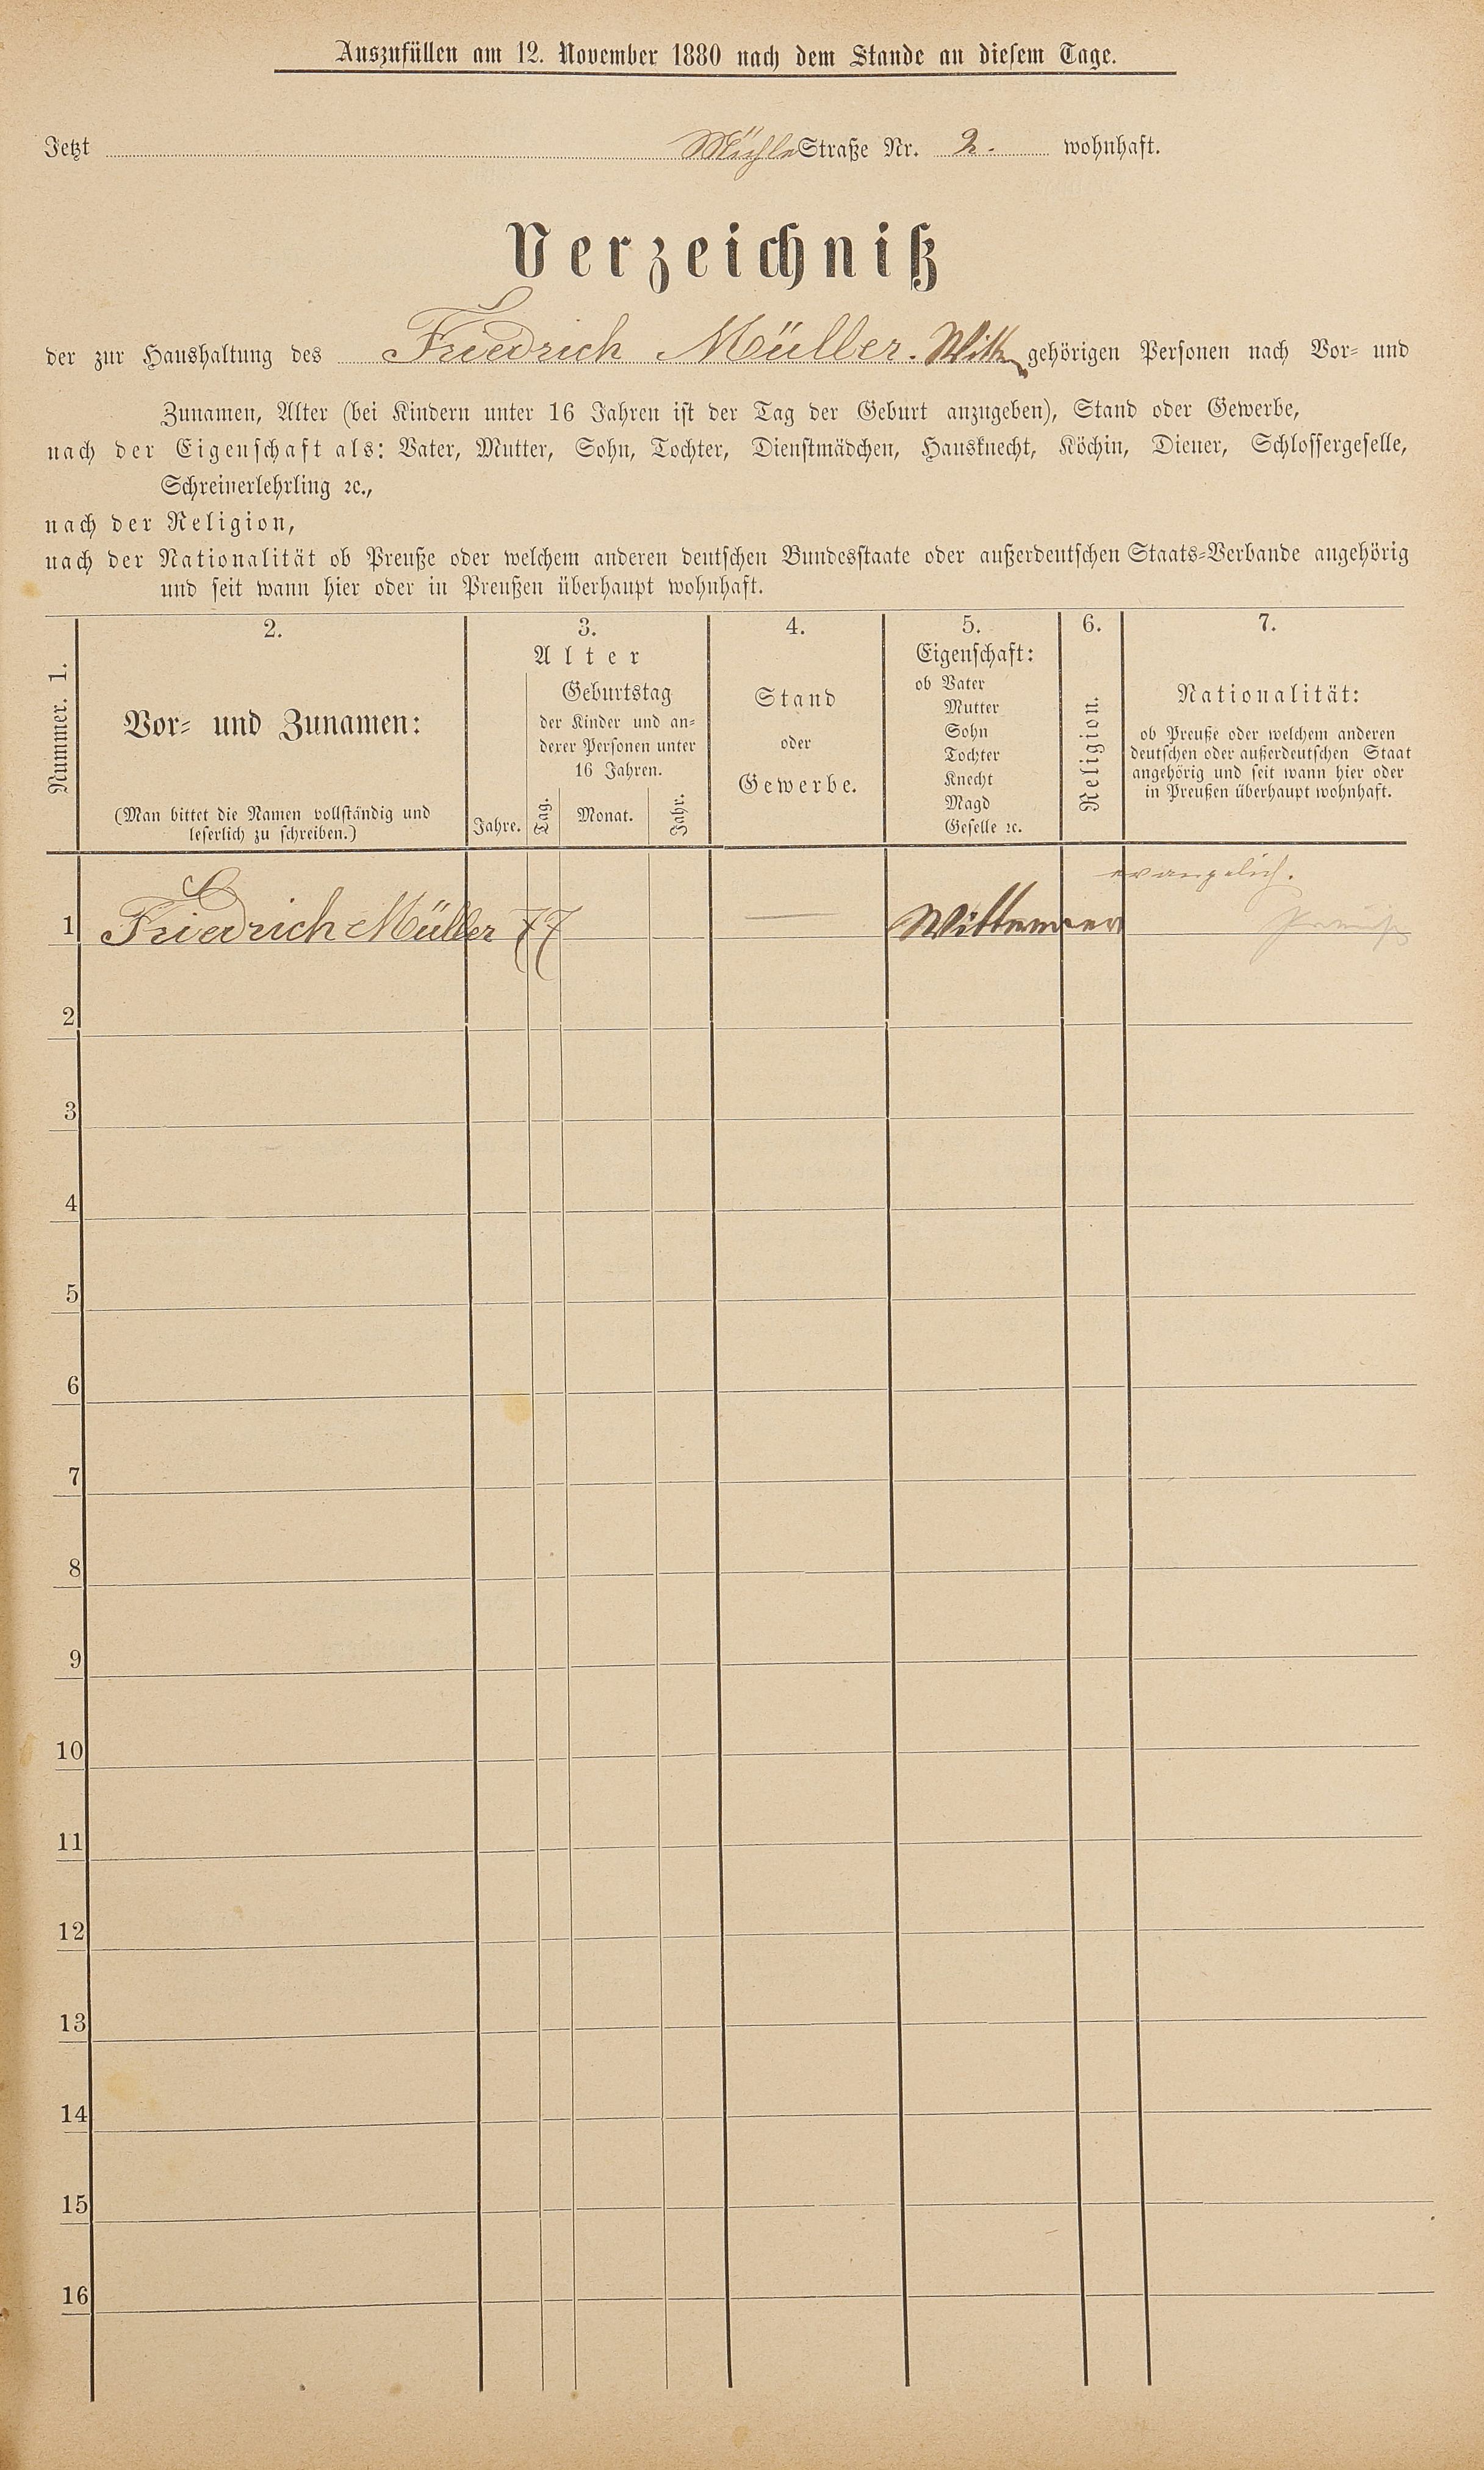 Auszufüllen am 12. November 1880 nach dem Stande an diesem Tage.
Jetzt Mühle Straße Nr. 2. wohnhaft.
Verzeichniß
der zur Haushaltung des Friedrich Müller. gehörigen Personen nach Vor- und
Zunamen, Alter (bei Kindern unter 16 Jahren ist der Tag der Geburt anzugeben), Stand oder Gewerbe,
nach der Eigenschaft als: Vater, Mutter, Sohn, Tochter, Dienstmädchen, Hausknecht, Köchin, Diener, Schlossergeselle,
Schreinerlehrling ꝛc.,
nach der Religion,
nach der Nationalität ob Preuße oder welchem anderen deutschen Bundesstaate oder außerdeutschen Staats-Verbande angehörig
und seit wann hier oder in Preußen überhaupt wohnhaft.
Nummer. 1.
2.
Vor- und Zunamen:
(Man bittet die Namen vollständig und
leserlich zu schreiben.)
3.
Alter
Geburtstag
der Kinder und an-
derer Personen unter
16 Jahren.
Jahre. Tag. Monat. Jahr.
4.
Stand
oder
Gewerbe.
5.
Eigenschaft:
ob Vater
Mutter
Sohn
Tochter
Knecht
Magd
Geselle ꝛc.
6.
Religion.
7.
Nationalität:
ob Preuße oder welchem anderen
deutschen oder außerdeutschen Staat
angehörig und seit wann hier oder
in Preußen überhaupt wohnhaft.
evangelich.
1 Friedrich Müller 77 — Wittewer Preuße
2
3
4
5
6
7
8
9
10
11
12
13
14
15
16